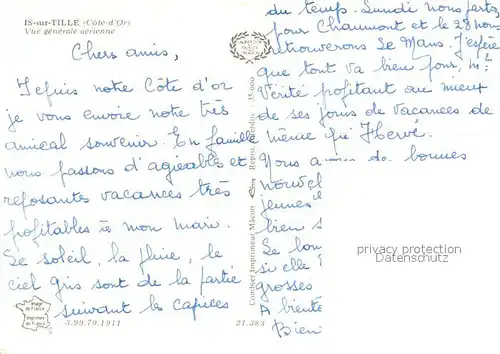 IS-sur-TILLE (Côte-d'Or)
Vue générale aérienne
Chers amis,
Depuis notre Côte d'or
je vous envoie notre très
amical souvenir. En famille
nous passons d'agréables et
reposantes vacances très
profitables à mon mari.
Le soleil, la pluie, le
ciel gris sont de la partie
suivant les caprices
Image de France
Imprimée en France
3.99.79.1911
21.383
Combier Imprimeur Mâcon
du temps. Lundi nous partons
pour Chaumont et le 28 nous
retrouverons Le Mans. J'espère
que tout va bien pour
Vérité profitant au mieux
de ses jours de vacances de
même qu'Hervé.
Vous a de bonnes
nouvel
jeunes
bien s
Le bon
si elle
grosses
A biente
Bien
privacy protection
Datenschutz